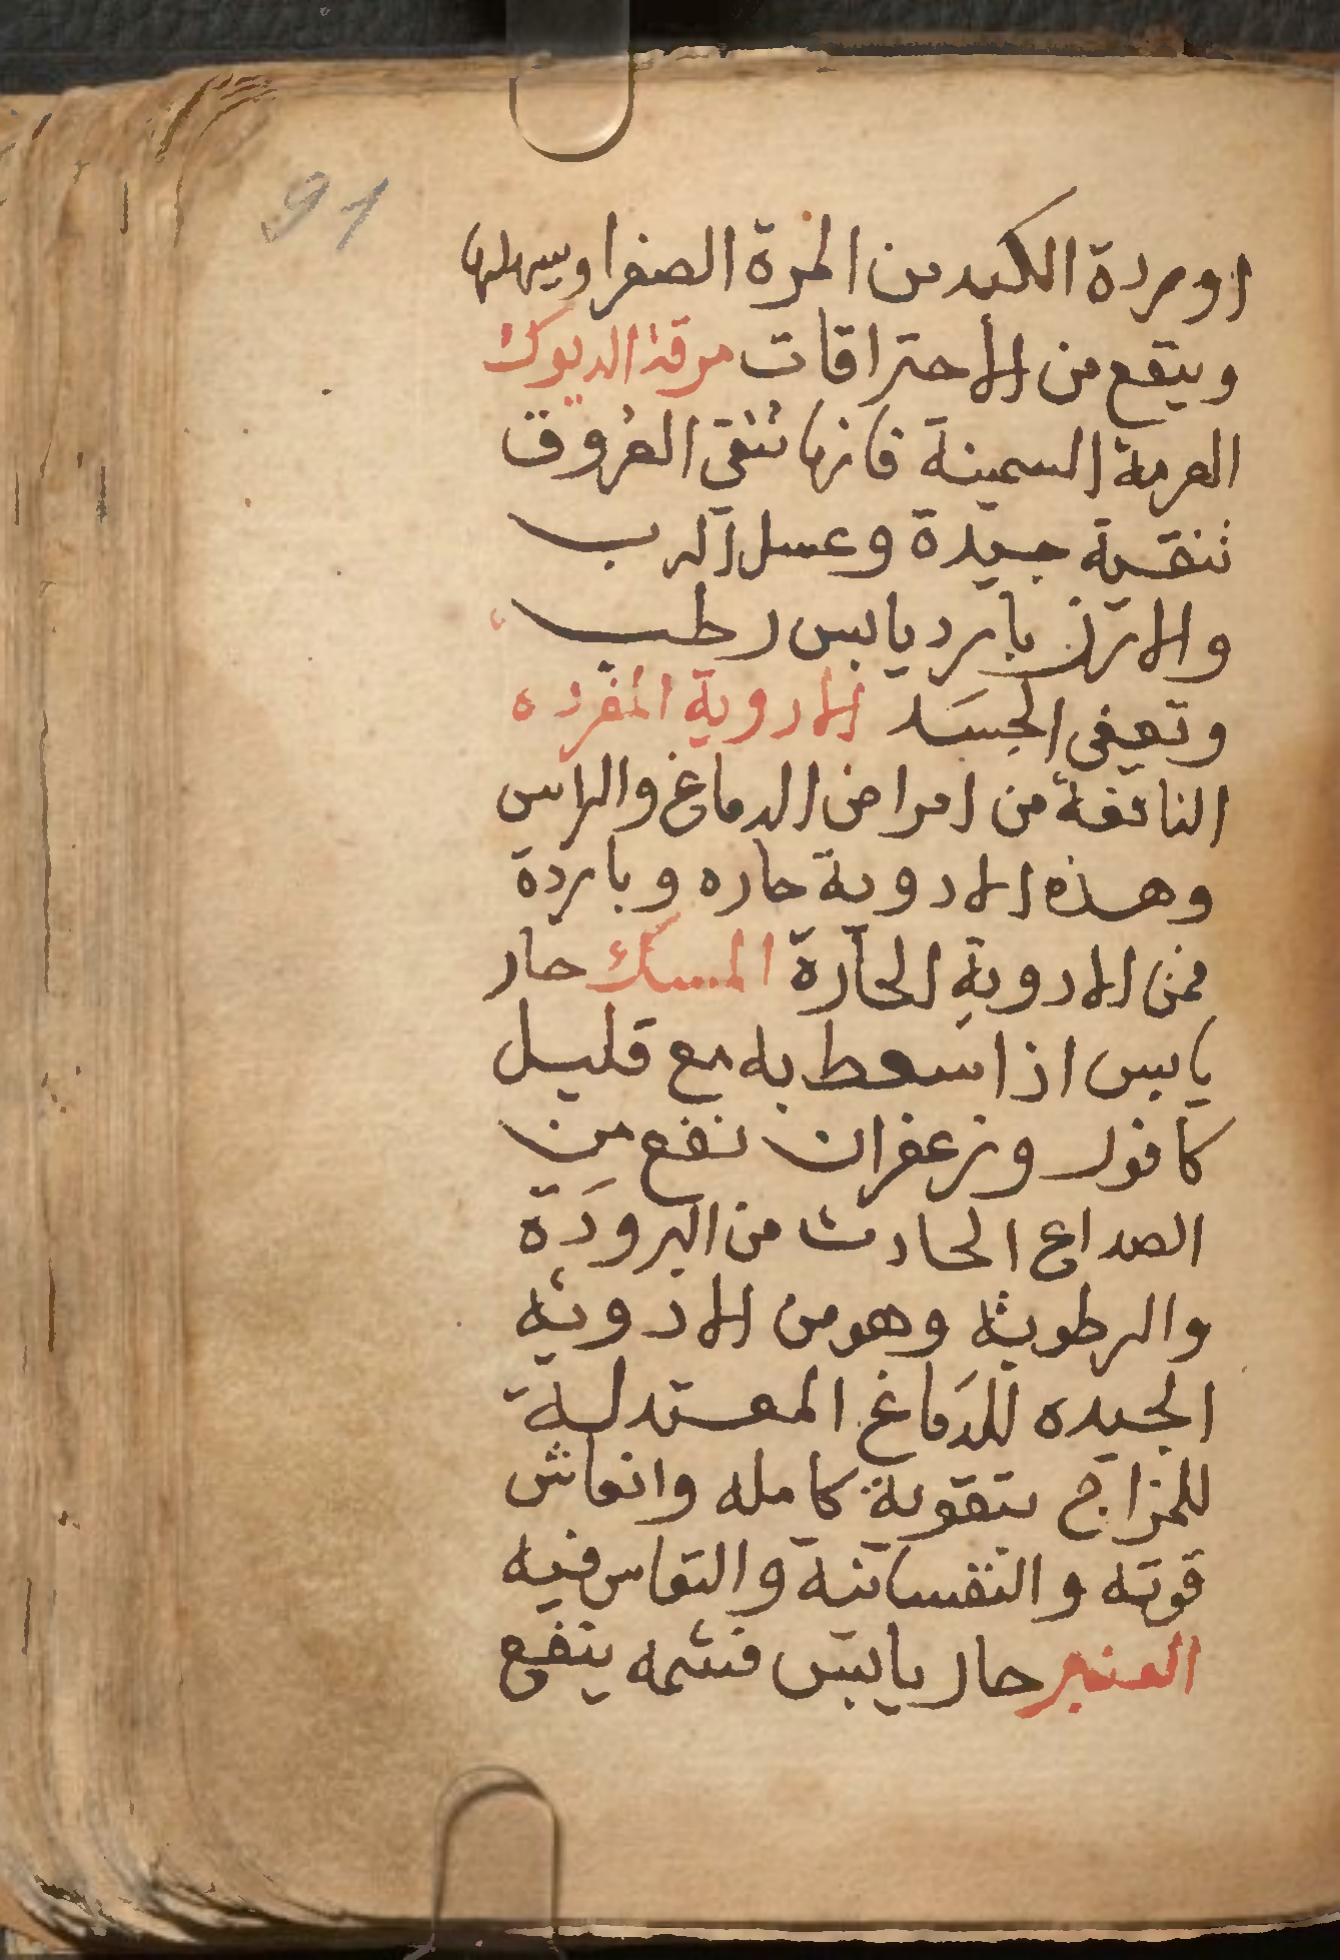 91
اوردة الكبد من المرة الصفرا ويسهلها
وينفع من الاحتراقات مرقة الديوك
الهرمة السمينة فانها تنقى العروق
تنقية جيدة وعسل الرب
والارز بارد يابس رطب
الجسد الادوية المفرده
النافعة من امراض الدماغ والراس
وهذه الادوية حاره وباردة
فمن الادوية الحارة المسك حار
يابس اذا سعط به مع قليل
كافور وزعفران نفع من
الصداع الحادث من البرودة
والرطوبة وهو من الادوية
الجيده للدماغ المعتدلة
للمزاج بتقوية كامله وانعاش
قوته والنفسانية فيه
العنبر حار يابس فشمه ينفع